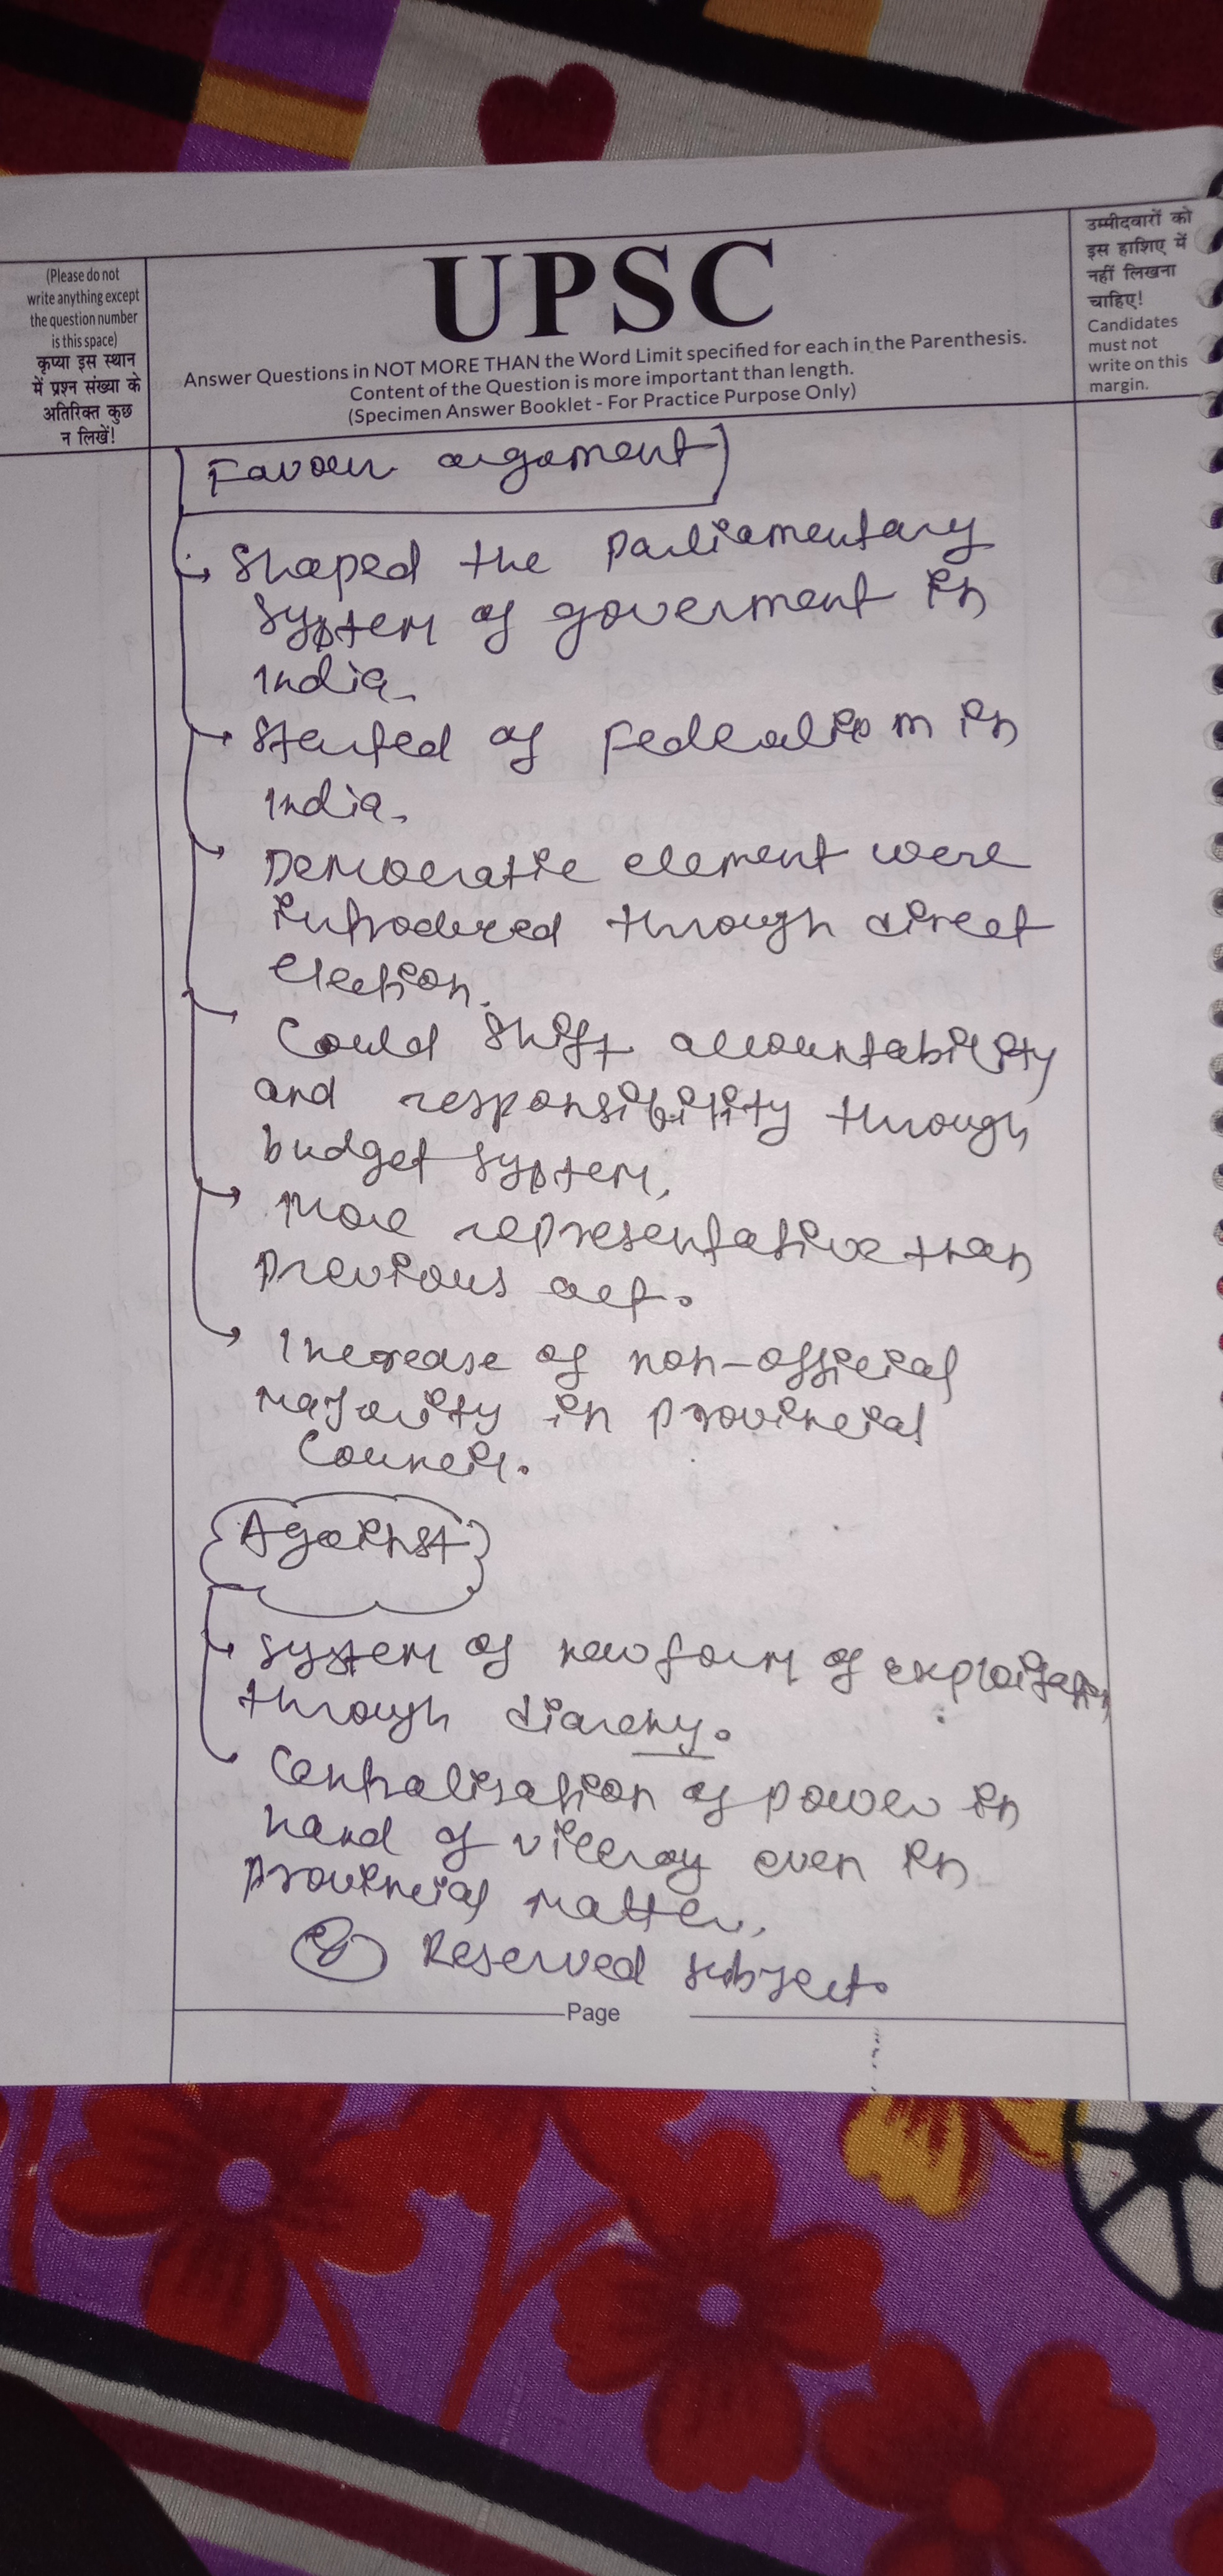 (Please do not
write anything except
the question number
is this space)
कृप्या इस स्थान
में प्रश्न संख्या के
अतिरिक्त कुछ
न लिखें!
UPSC
Answer Questions in NOT MORE THAN the Word Limit specified for each in the Parenthesis.
Content of the Question is more important than length.
(Specimen Answer Booklet - For Practice Purpose Only)
उम्मीदवारों को
इस हाशिए में
नहीं लिखना
चाहिए!
Candidates
must not
write on this
margin.
Favour argument
Shaped the Parliamentary
system of goverment in
India.
Started of Federalism in
India.
Democratic element were
introduced through direct
election.
Could shift accountability
and responsibility through
budget system.
More representative than
previous act.
Increase of non-official
majority in provincial
Council.
Against
System of new form of exploitation
through diarchy.
Centralisation of power in
hand of viceroy even in
provincial matter.
Reserved subject.
Page